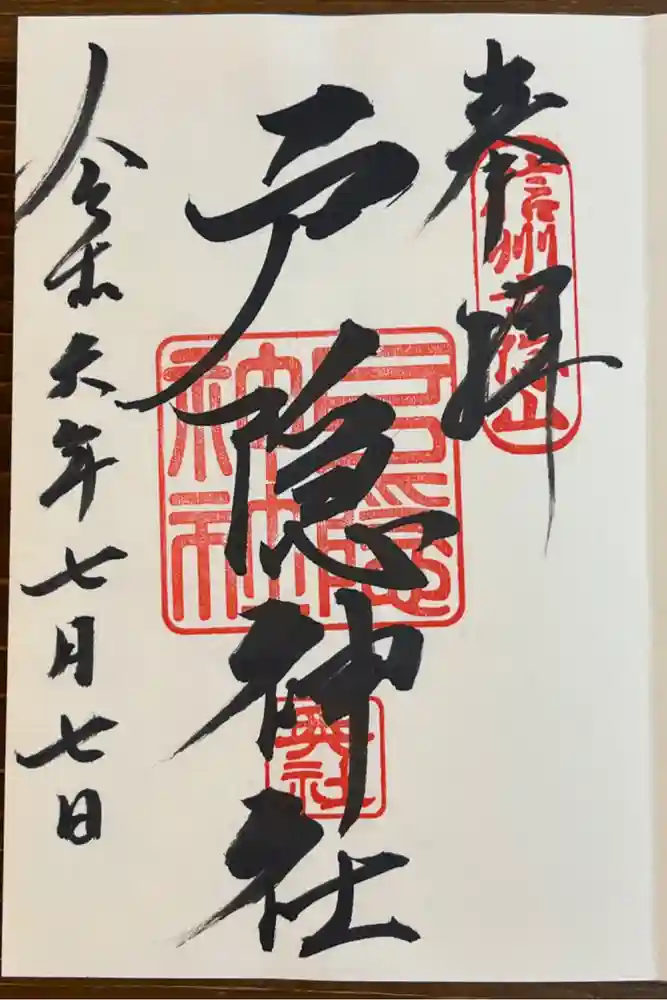 奉拝
信州戸隠山
戸隠神社
戸隠神社
奥社
令和六年七月七日